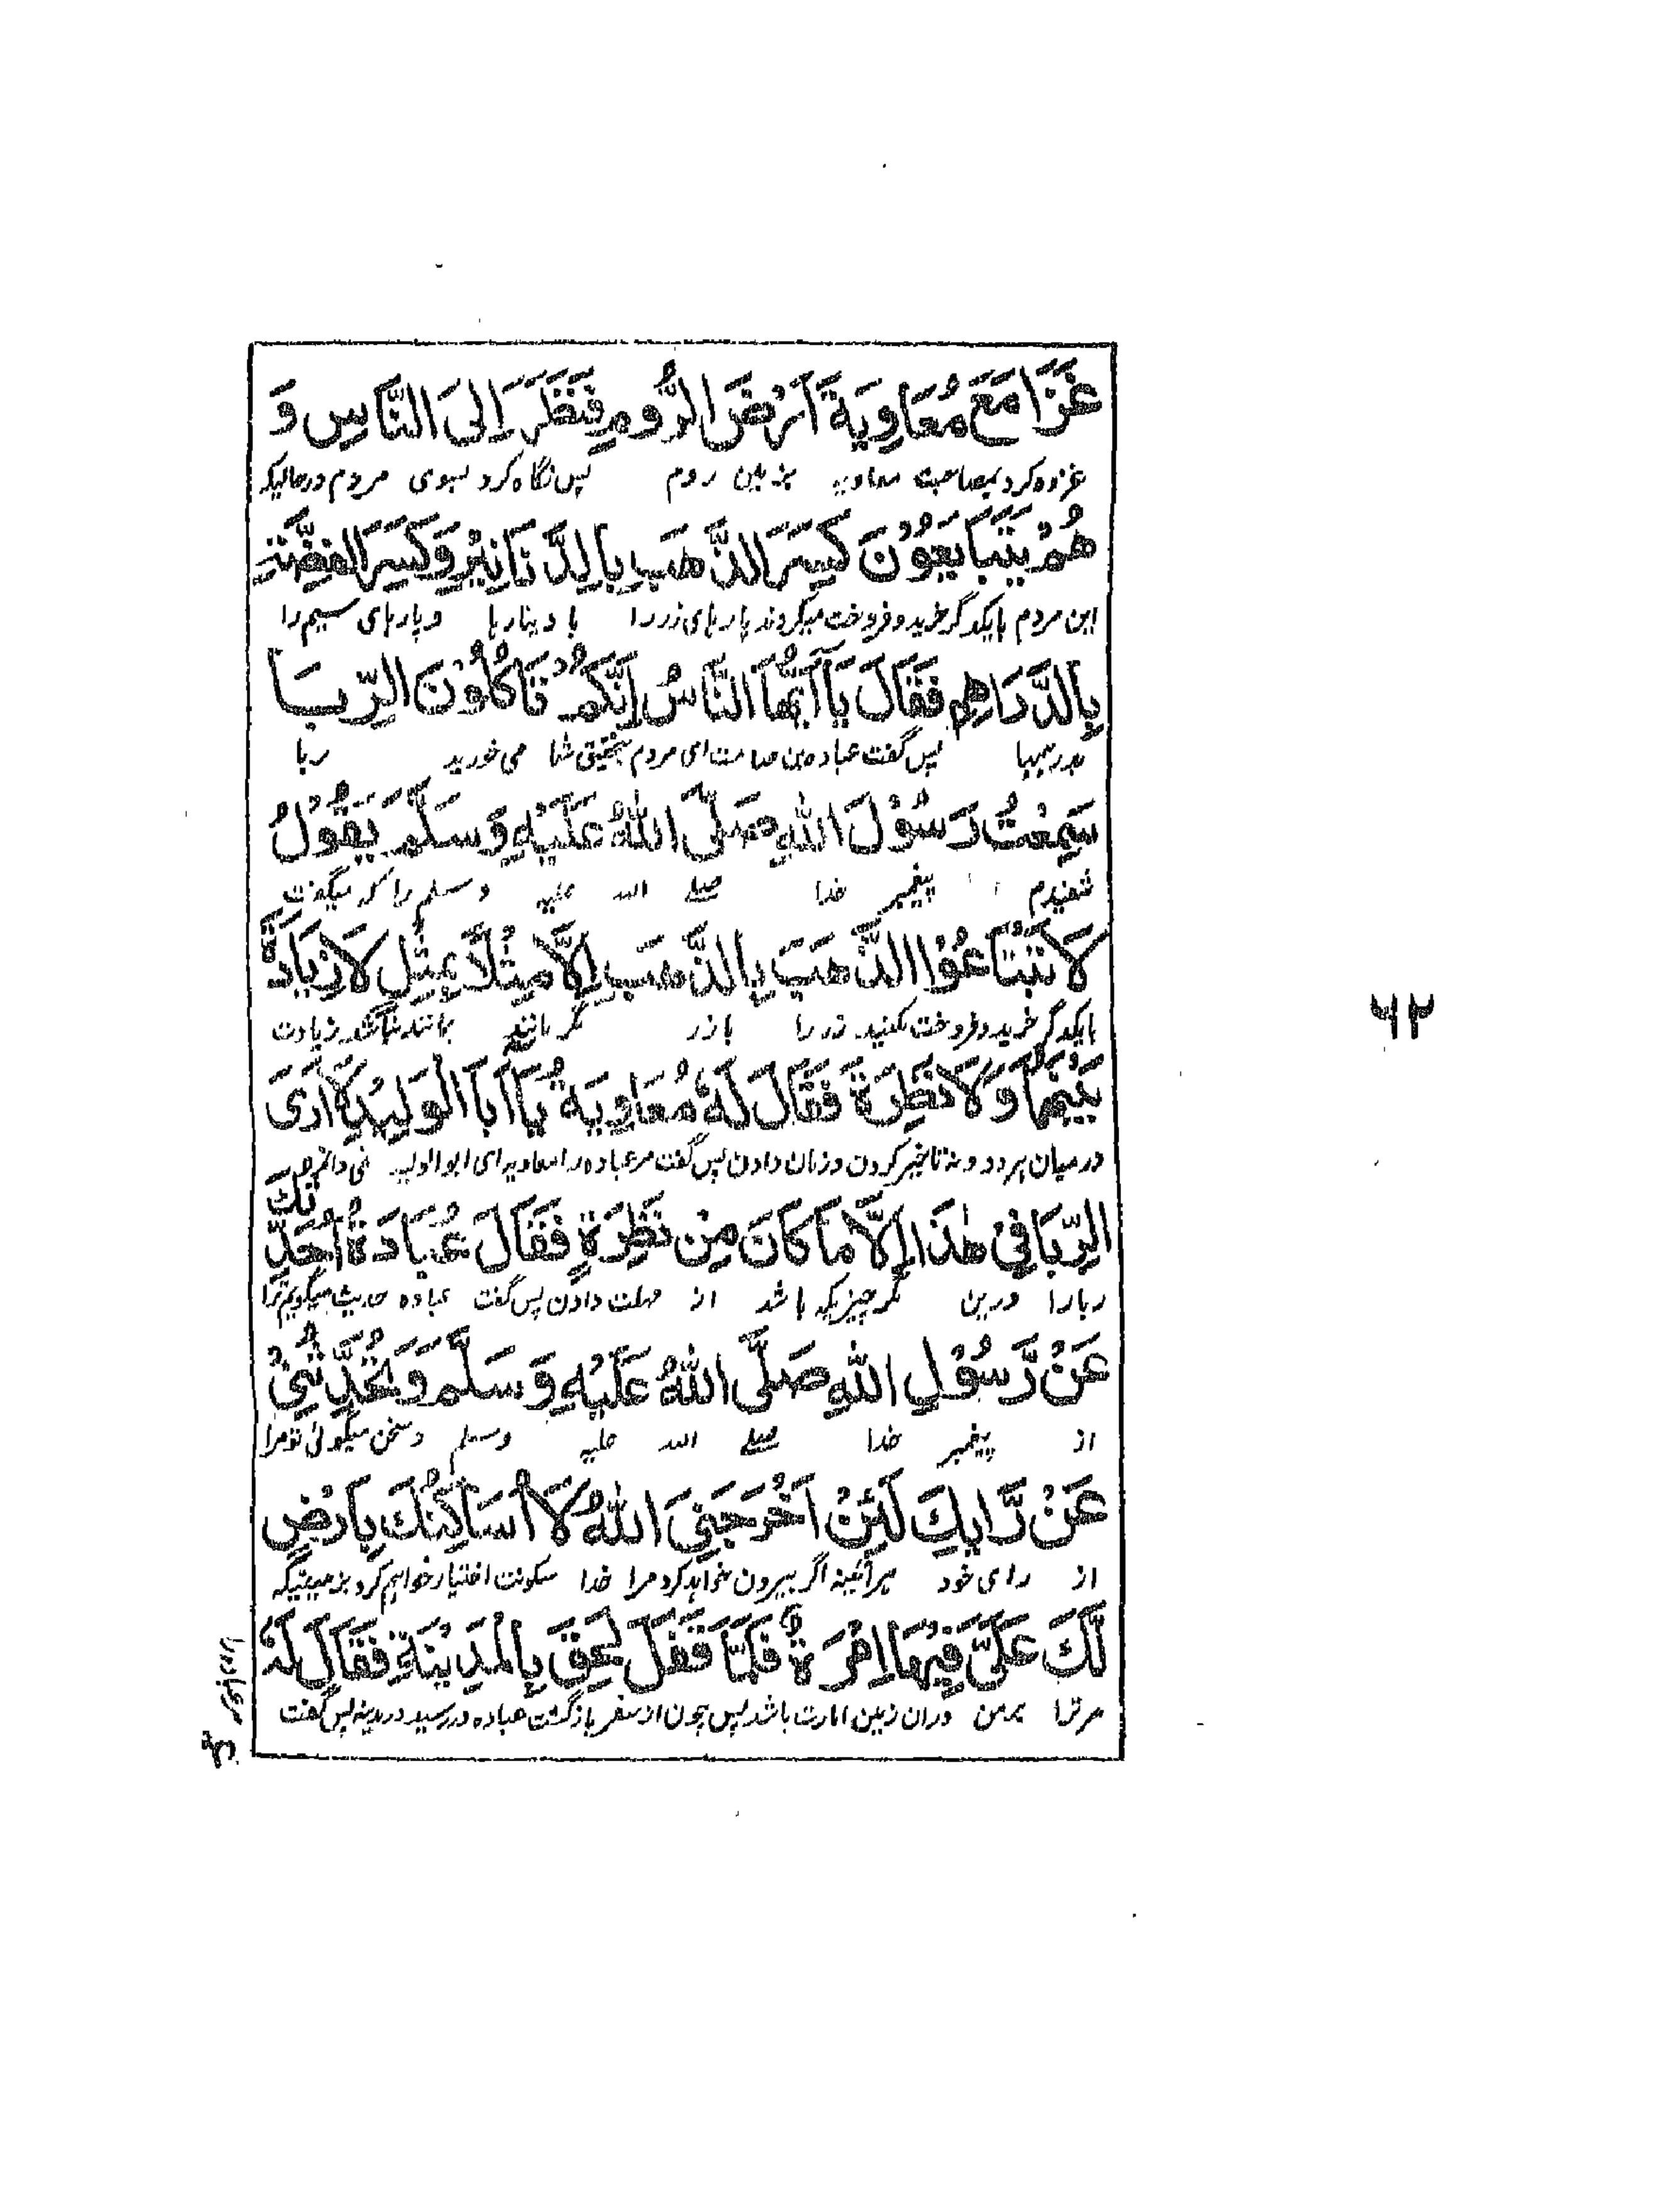 غَزَا مَعَ مُعَاوِيَةَ اَرْضَ الرُّومِ فَنَظَرَ اِلَى النَّاسِ وَ
غزوه کرد بمصاحبت معاویه بزمین روم پس نگاه کرد بسوی مردم درحالیکه
هُمْ يَتَبَايَعُوْنَ كَسِرَ الذَّهَبِ بِالدَّنَانِيْرِ وَكَسِرَ الفِضَّةِ
این مردم بایکدگر خرید و فروخت میکردند پارهای زر را با دینارها و پارهای سیم را
بِالدَّرَاهِمِ فَقَالَ يَا اَيُّهَا النَّاسُ اِنَّكُمْ تَاكُلُوْنَ الرِّبَا
بدرهمها پس گفت عباده بن صامت ای مردم بتحقیق شما می خورید ربا
سَمِعْتُ رَسُوْلَ اللهِ صَلَّى اللهُ عَلَيْهِ وَسَلَّمَ يَقُوْلُ
شنیدم پیغمبر خدا صلے الله علیه وسلم را که میگفت
لَا تَبْتَاعُوْا الذَّهَبَ بِالذَّهَبِ اِلَّا مِثْلًا بِمِثْلٍ لَا زِيَادَةَ
بایکدگر خرید و فروخت مکنید زر را با زر مگر مانند بمانند زیادت
بَيْنَهُمَا وَلَا نَظِرَةَ فَقَالَ لَهُ مُعَاوِيَةُ يَا اَبَا الْوَلِيْدِ لَا اَرَى
درمیان هر دو و نه تاخیر کردن و زمان دادن پس گفت مر عباده را معاویه ای ابو الولید نمی دانم
الرِّبَا فِيْ هٰذَا اِلَّا مَا كَانَ مِنْ نَظِرَةٍ فَقَالَ عُبَادَةُ اُحَدِّثُكَ
ربا را درین مگر چیزیکه باشد از مهلت دادن پس گفت عباده حدیث میگویم ترا
عَنْ رَّسُوْلِ اللهِ صَلَّى اللهُ عَلَيْهِ وَسَلَّمَ وَتُحَدِّثُنِيْ
از پیغمبر خدا صلے الله علیه وسلم و سخن میگوئی تو مرا
عَنْ رَّايِكَ لَئِنْ اَخْرَجَنِيَ اللهُ لَا اُسَاكِنُكَ بِاَرْضٍ
از رای خود هرآئینه اگر بیرون خواهد کرد مرا خدا سکونت اختیار خواهم کرد بزمینیکه
لَّكَ عَلَيَّ فِيْهَا اِمْرَةٌ فَلَمَّا قَفَلَ لَحِقَ بِالْمَدِيْنَةِ فَقَالَ لَهُ
مر ترا بر من دران زمین امارت باشد پس چون از سفر بازگشت عباده در رسید در مدینه پس گفت
۶۲